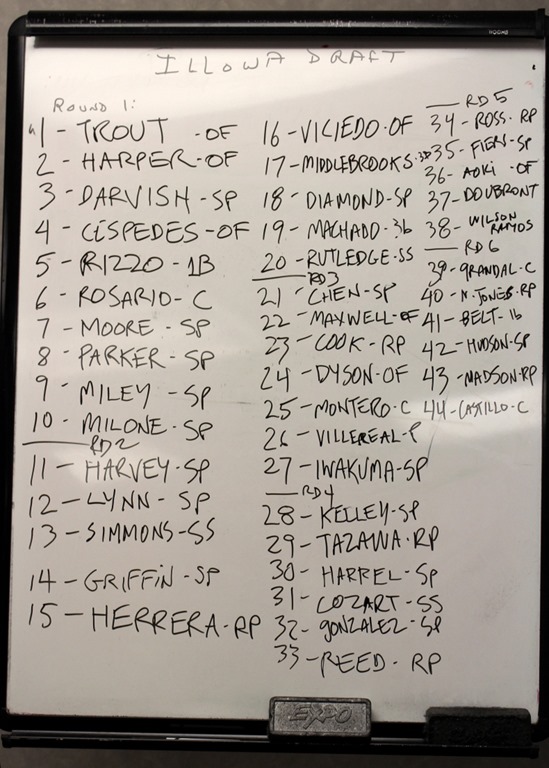 ILLOWA DRAFT
ROUND 1:
1 - TROUT - OF
2 - HARPER - OF
3 - DARVISH - SP
4 - CESPEDES - OF
5 - RIZZO - 1B
6 - ROSARIO - C
7 - MOORE - SP
8 - PARKER - SP
9 - MILEY - SP
10 - MILONE - SP
RD 2
11 - HARVEY - SP
12 - LYNN - SP
13 - SIMMONS - SS
14 - GRIFFIN - SP
15 - HERRERA - RP
16 - VICIEDO - OF
17 - MIDDLEBROOKS - 3B
18 - DIAMOND - SP
19 - MACHADO - 3b
20 - RUTLEDGE - SS
RD3
21 - CHEN - SP
22 - MAXWELL - OF
23 - COOK - RP
24 - DYSON - OF
25 - MONTERO - C
26 - VILLEREAL - P
27 - IWAKUMA - SP
RD4
28 - KELLEY - SP
29 - TAZAWA - RP
30 - HARREL - SP
31 - COZART - SS
32 - GONZALEZ - SP
33 - REED - RP
RD 5
34 - ROSS - RP
35 - FIERS - SP
36 - AOKI - OF
37 - DOUBRONT
38 - WILSON RAMOS
RD 6
39 - GRANDAL - C
40 - N. JONES - RP
41 - BELT - 1b
42 - HUDSON - SP
43 - MADSON - RP
44 - CASTILLO - C
EXPO